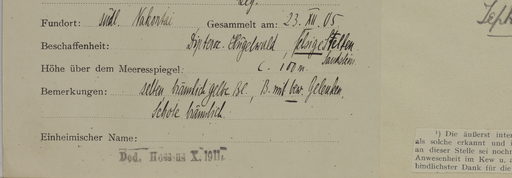 Leg.
Fundort: südl. Nakontai Gesammelt am: 23. XII. 05
Beschaffenheit: Diptero. Hügelwald, felsige Stellen
Sandstein
Höhe über dem Meeresspiegel: c. 100 m
Bemerkungen: selten bräunlich gelbe Bl., B. mit Gelenken.
Schote bräunlich.
Einheimischer Name:
Ded. Hosseus X. 1911.
Sept
¹) Die äußerst inter
als solche erkannt und i
an dieser Stelle sei noch
Anwesenheit im Kew u. a
bindlichster Dank für die